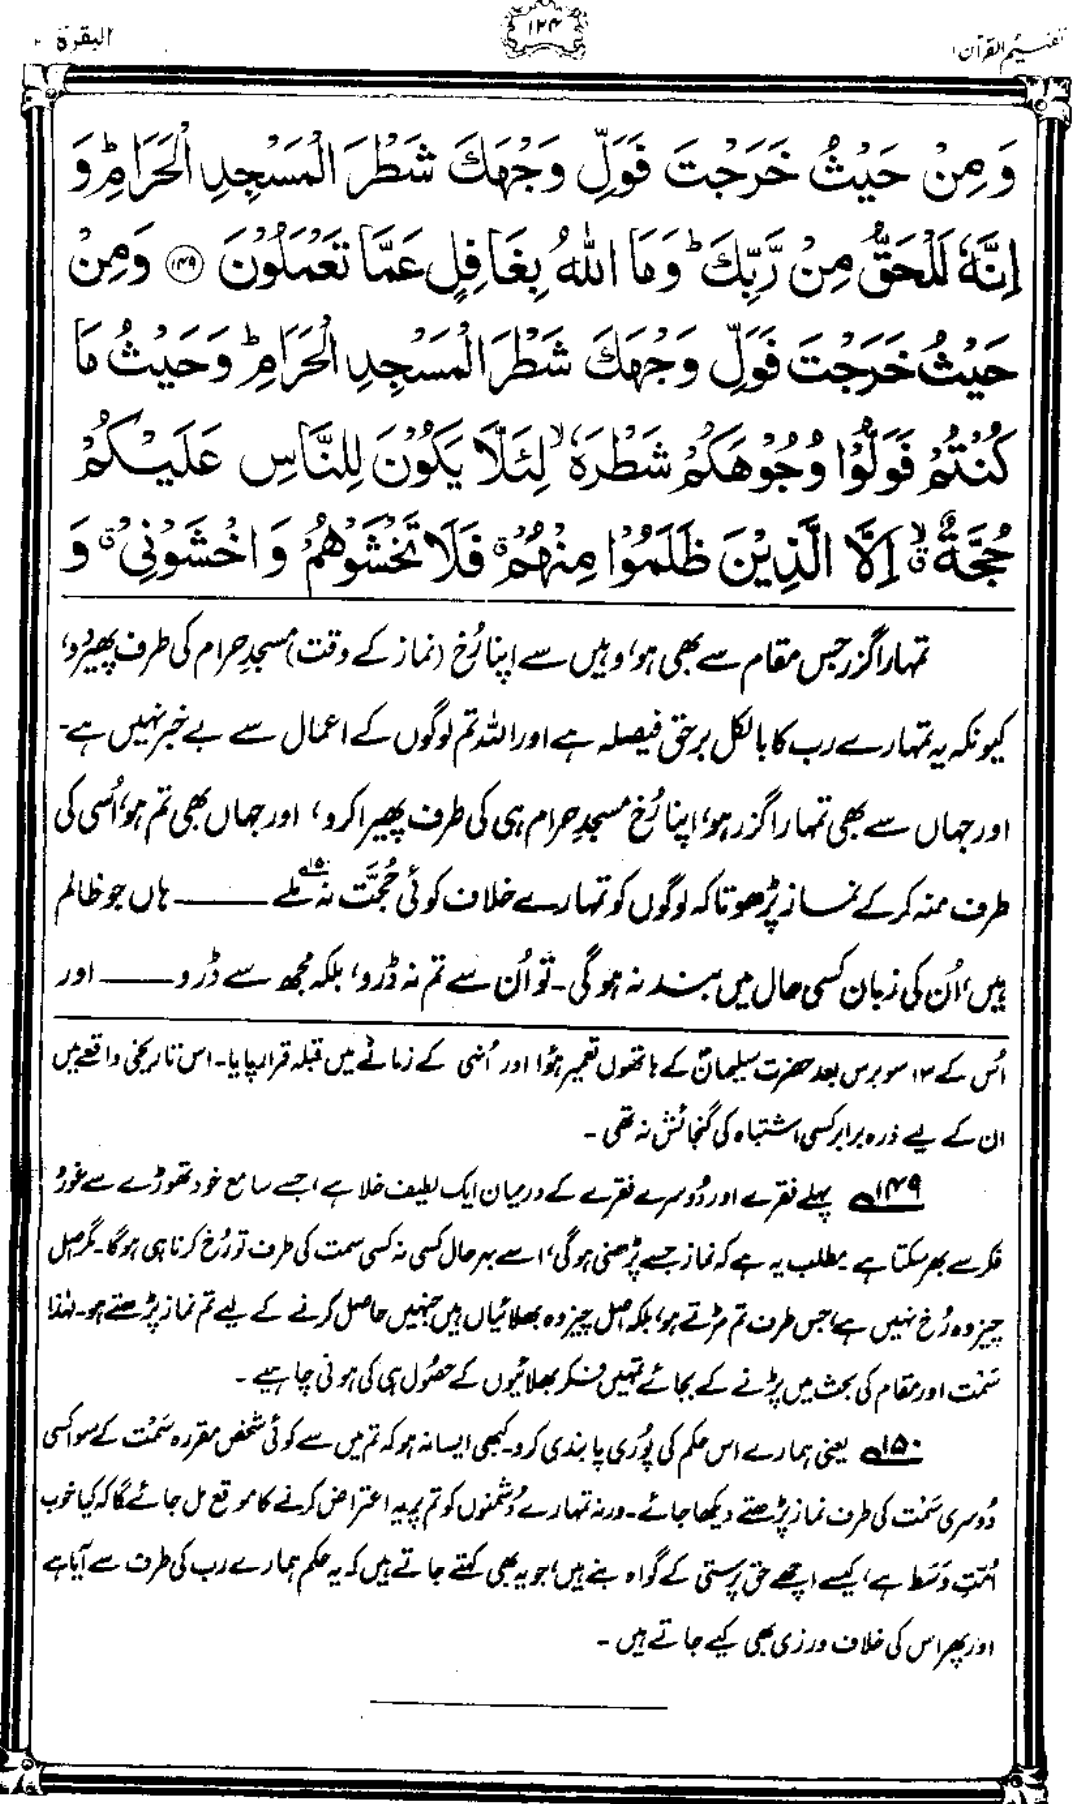 تفہیم القرآن ۱
۱۲۴
البقرۃ ۲
وَمِنْ حَيْثُ خَرَجْتَ فَوَلِّ وَجْهَكَ شَطْرَ الْمَسْجِدِ الْحَرَامِ ؕ وَ
اِنَّهٗ لَلْحَقُّ مِنْ رَّبِّكَ ؕ وَمَا اللّٰهُ بِغَافِلٍ عَمَّا تَعْمَلُوْنَ ﴿۱۴۹﴾ وَمِنْ
حَيْثُ خَرَجْتَ فَوَلِّ وَجْهَكَ شَطْرَ الْمَسْجِدِ الْحَرَامِ ؕ وَحَيْثُ مَا
كُنْتُمْ فَوَلُّوْا وُجُوْهَكُمْ شَطْرَهٗ ۙ لِئَلَّا يَكُوْنَ لِلنَّاسِ عَلَيْكُمْ
حُجَّةٌ ۙۗ اِلَّا الَّذِيْنَ ظَلَمُوْا مِنْهُمْ ۗ فَلَا تَخْشَوْهُمْ وَاخْشَوْنِيْ ۗ وَ
تمہارا گزر جس مقام سے بھی ہو، وہیں سے اپنا رُخ (نماز کے وقت) مسجدِ حرام کی طرف پھیر دو،
کیونکہ یہ تمہارے رب کا بالکل برحق فیصلہ ہے اور اللہ تم لوگوں کے اعمال سے بے خبر نہیں ہے۔
اور جہاں سے بھی تمہارا گزر ہو، اپنا رُخ مسجدِ حرام ہی کی طرف پھیرا کرو، اور جہاں بھی تم ہو، اُسی کی
طرف منہ کر کے نماز پڑھو تاکہ لوگوں کو تمہارے خلاف کوئی حُجَّت نہ ملے۱۵۰ ــــــ ہاں جو ظالم
ہیں، اُن کی زبان کسی حال میں بند نہ ہو گی۔ تو اُن سے تم نہ ڈرو، بلکہ مجھ سے ڈرو ــــــ اور
اُس کے ۱۳ سو برس بعد حضرت سلیمانؑ کے ہاتھوں تعمیر ہوُا اور اُنہی کے زمانے میں قبلہ قرار پایا۔ اس تاریخی واقعے میں
ان کے لیے ذرہ برابر کسی اشتباہ کی گنجائش نہ تھی۔
۱۴۹ پہلے فقرے اور دُوسرے فقرے کے درمیان ایک لطیف خلا ہے، جسے سامع خود تھوڑے سے غور و
فکر سے بھر سکتا ہے۔ مطلب یہ ہے کہ نماز جسے پڑھنی ہو گی، اسے بہرحال کسی نہ کسی سمت کی طرف تو رُخ کرنا ہی ہو گا۔ مگر اصل
چیز وہ رُخ نہیں ہے، جس طرف تم مڑتے ہو، بلکہ اصل چیز وہ بھلائیاں ہیں جنہیں حاصل کرنے کے لیے تم نماز پڑھتے ہو۔ لہٰذا
سَمْت اور مقام کی بحث میں پڑنے کے بجائے تمہیں فکر بھلائیوں کے حصُول ہی کی ہونی چاہیے۔
۱۵۰ یعنی ہمارے اس حکم کی پُوری پابندی کرو۔ کبھی ایسا نہ ہو کہ تم میں سے کوئی شخص مقررہ سَمْت کے سوا کسی
دُوسری سَمْت کی طرف نماز پڑھتے دیکھا جائے۔ ورنہ تمہارے دُشمنوں کو تم پر یہ اعتراض کرنے کا موقع مل جائے گا کہ کیا خوب
اُمّتِ وَسَط ہے، کیسے اچھے حق پرستی کے گواہ بنے ہیں، جو یہ بھی کہتے جاتے ہیں کہ یہ حکم ہمارے رب کی طرف سے آیا ہے
اور پھر اس کی خلاف ورزی بھی کیے جاتے ہیں۔